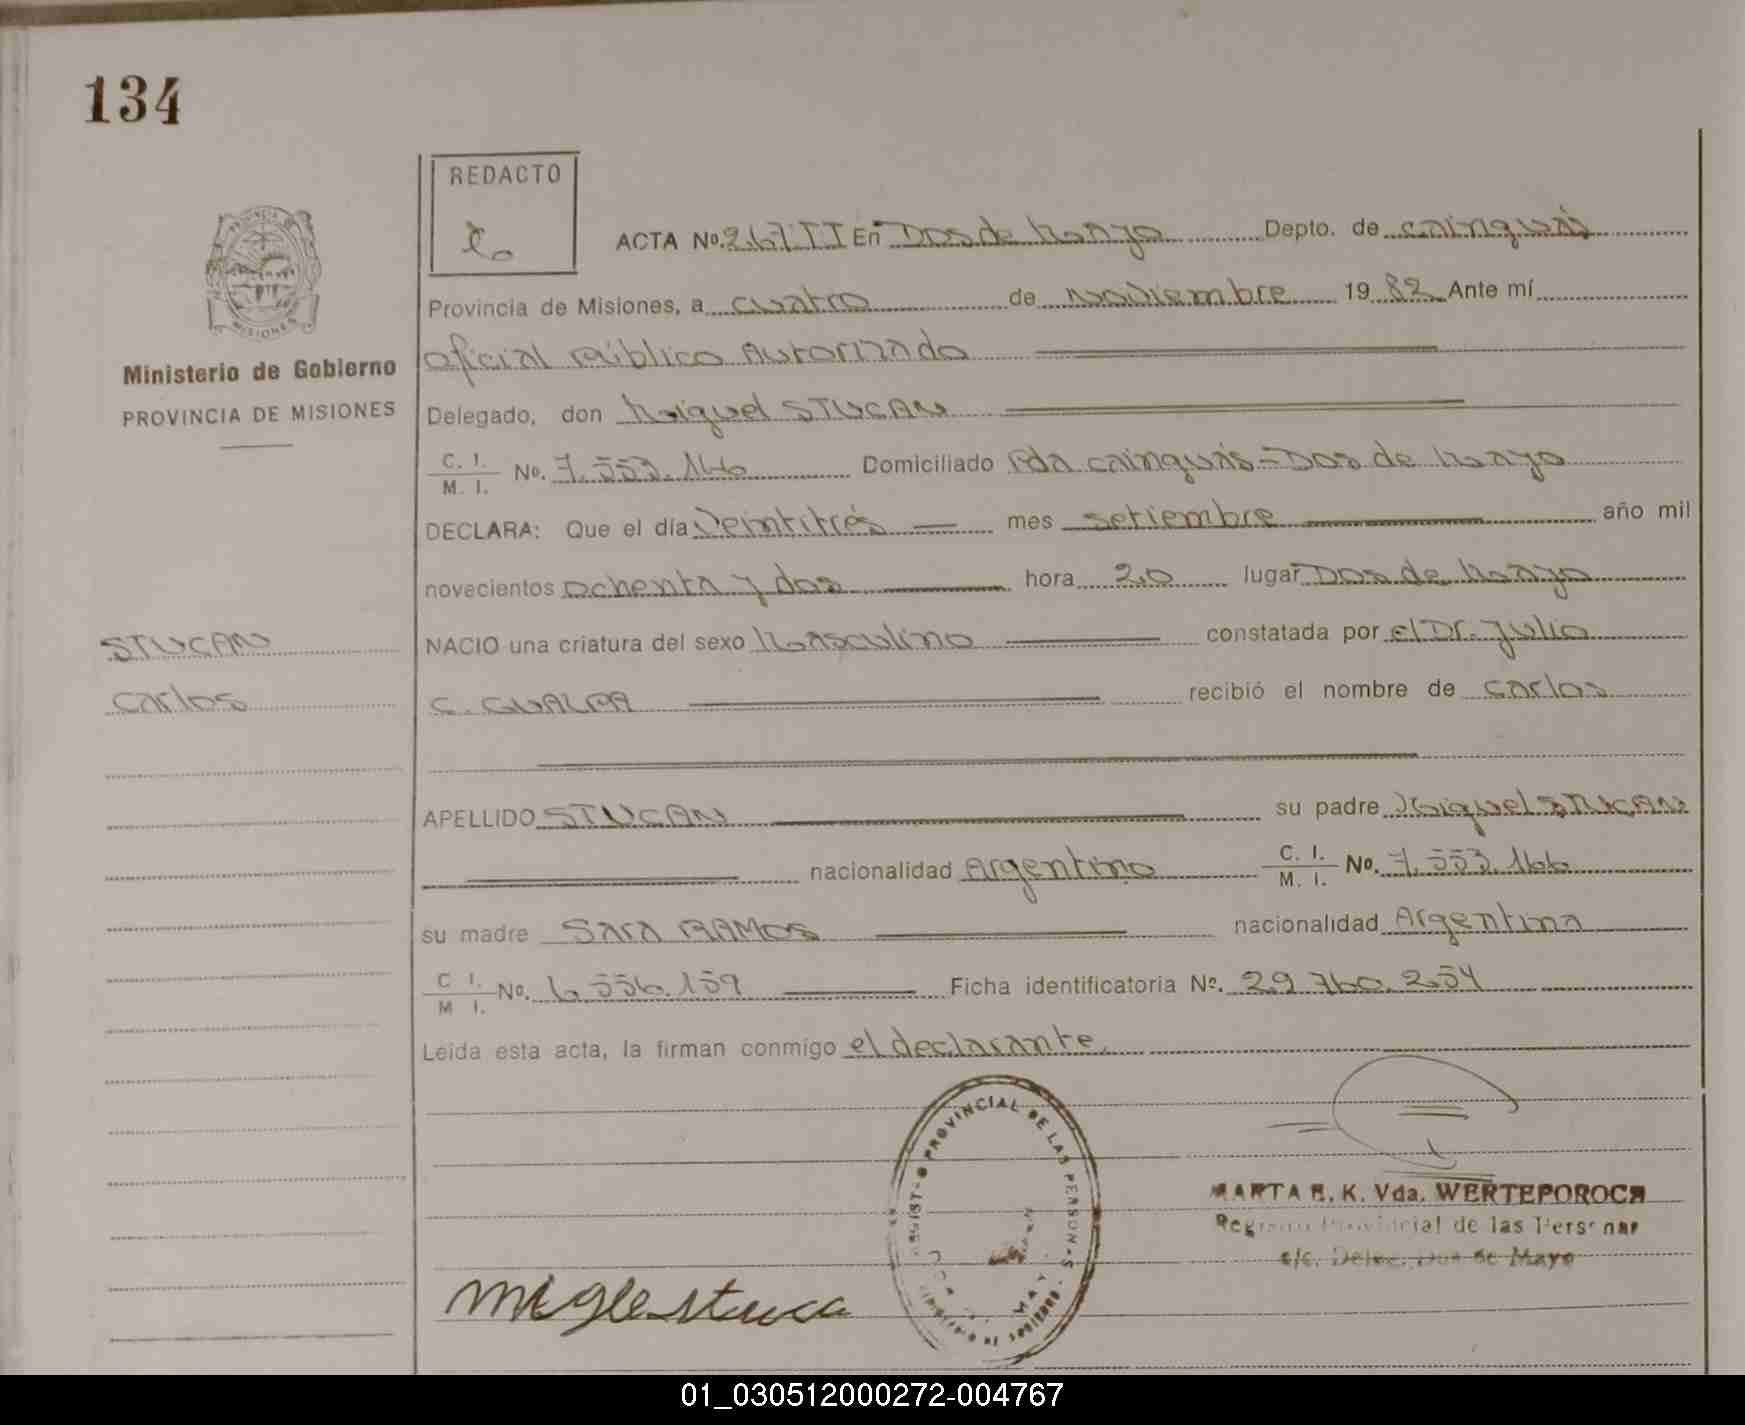 134
REDACTO
ACTA No. 267 II En Dos de Mayo Depto. de Cainguás
Provincia de Misiones, a cuatro de noviembre 19 82 Ante mí
Oficial Público Autorizado
Ministerio de Gobierno
PROVINCIA DE MISIONES
Delegado, don Miguel STUCAN
C. I.
M. I. No. 7.553.166 Domiciliado Pda Cainguás - Dos de Mayo
DECLARA: Que el día Veintitrés mes setiembre año mil
novecientos ochenta y dos hora 20 lugar Dos de Mayo
STUCAN
NACIO una criatura del sexo Masculino constatada por el Dr. Julio
Carlos
C. GUALPA recibió el nombre de Carlos
APELLIDO STUCAN su padre Miguel STUCAN
nacionalidad Argentino C. I.
M. I. No. 7.553.166
su madre Sara RAMOS nacionalidad Argentina
C I.
M I. No. 6.556.159 Ficha identificatoria Nº. 29.760.254
Leída esta acta, la firman conmigo el declarante.
PROVINCIAL DE LAS PERSON
MARTA R. K. Vda. WERTEPOROCH
Registro Provincial de las Personas
e/c. Deleg. Dos de Mayo
miglestuca
01_030512000272-004767